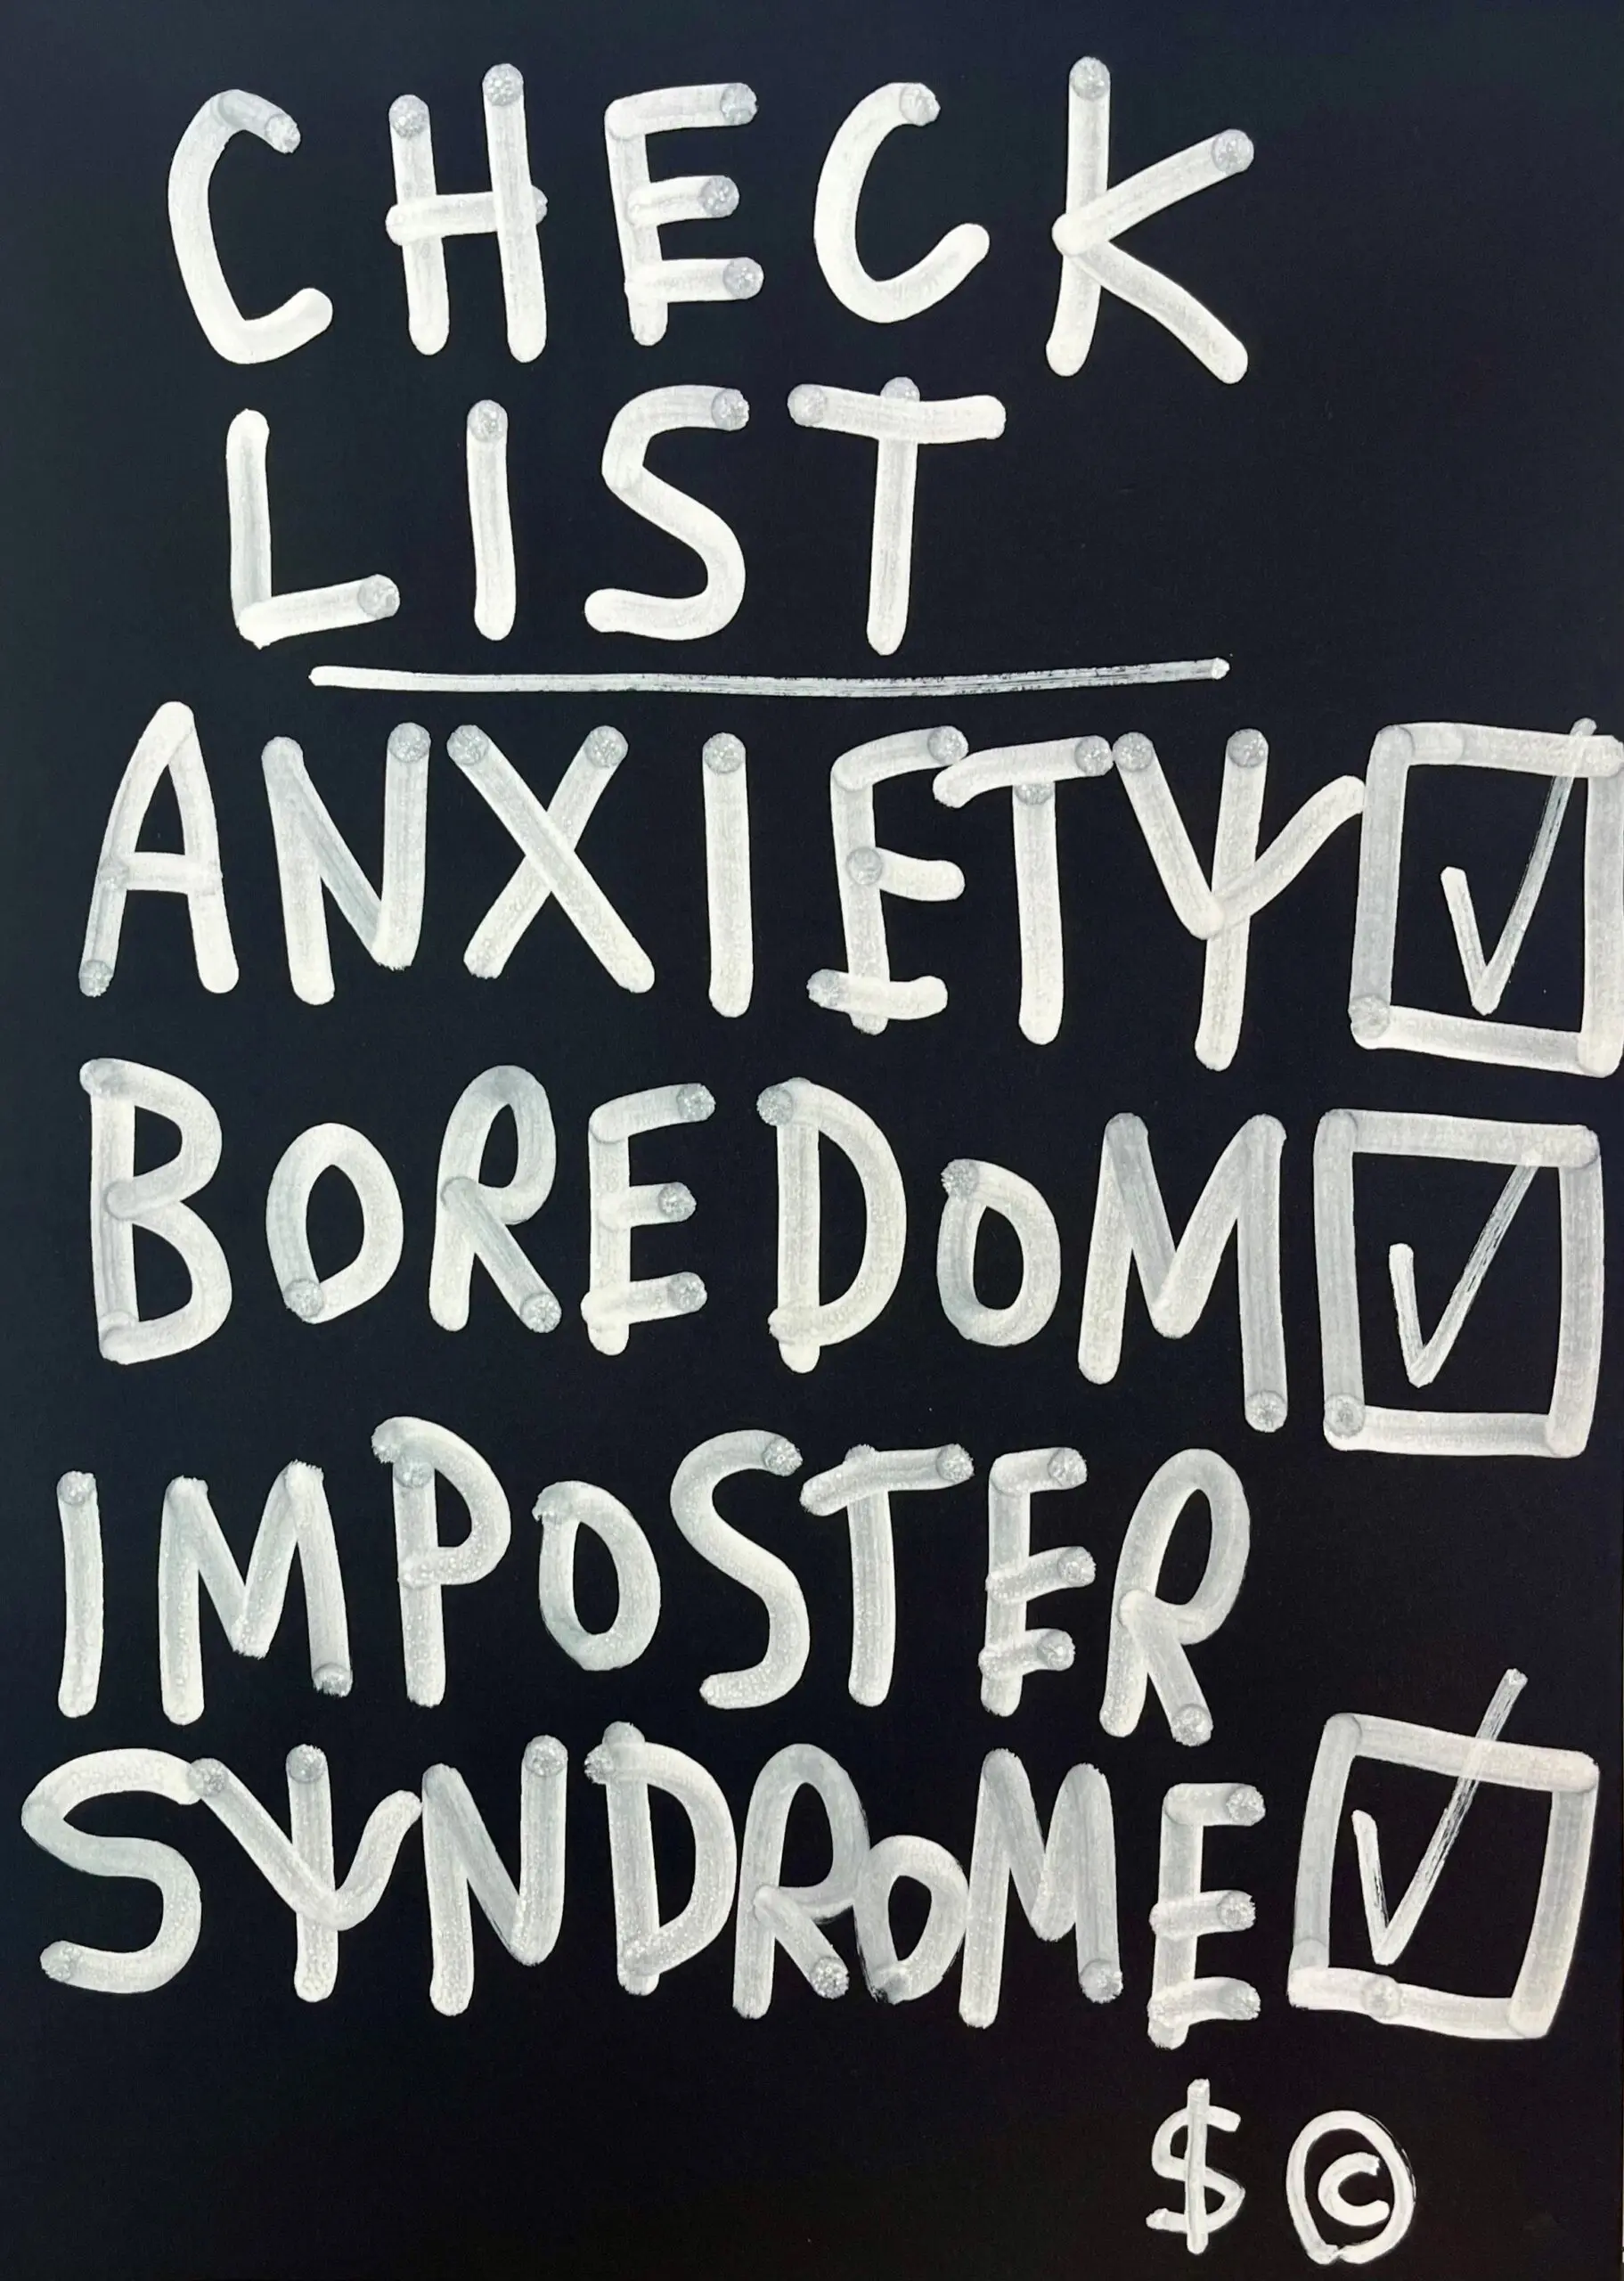 CHECK
LIST
ANXIETY ☑
BOREDOM ☑
IMPOSTER
SYNDROME ☑
$ ©